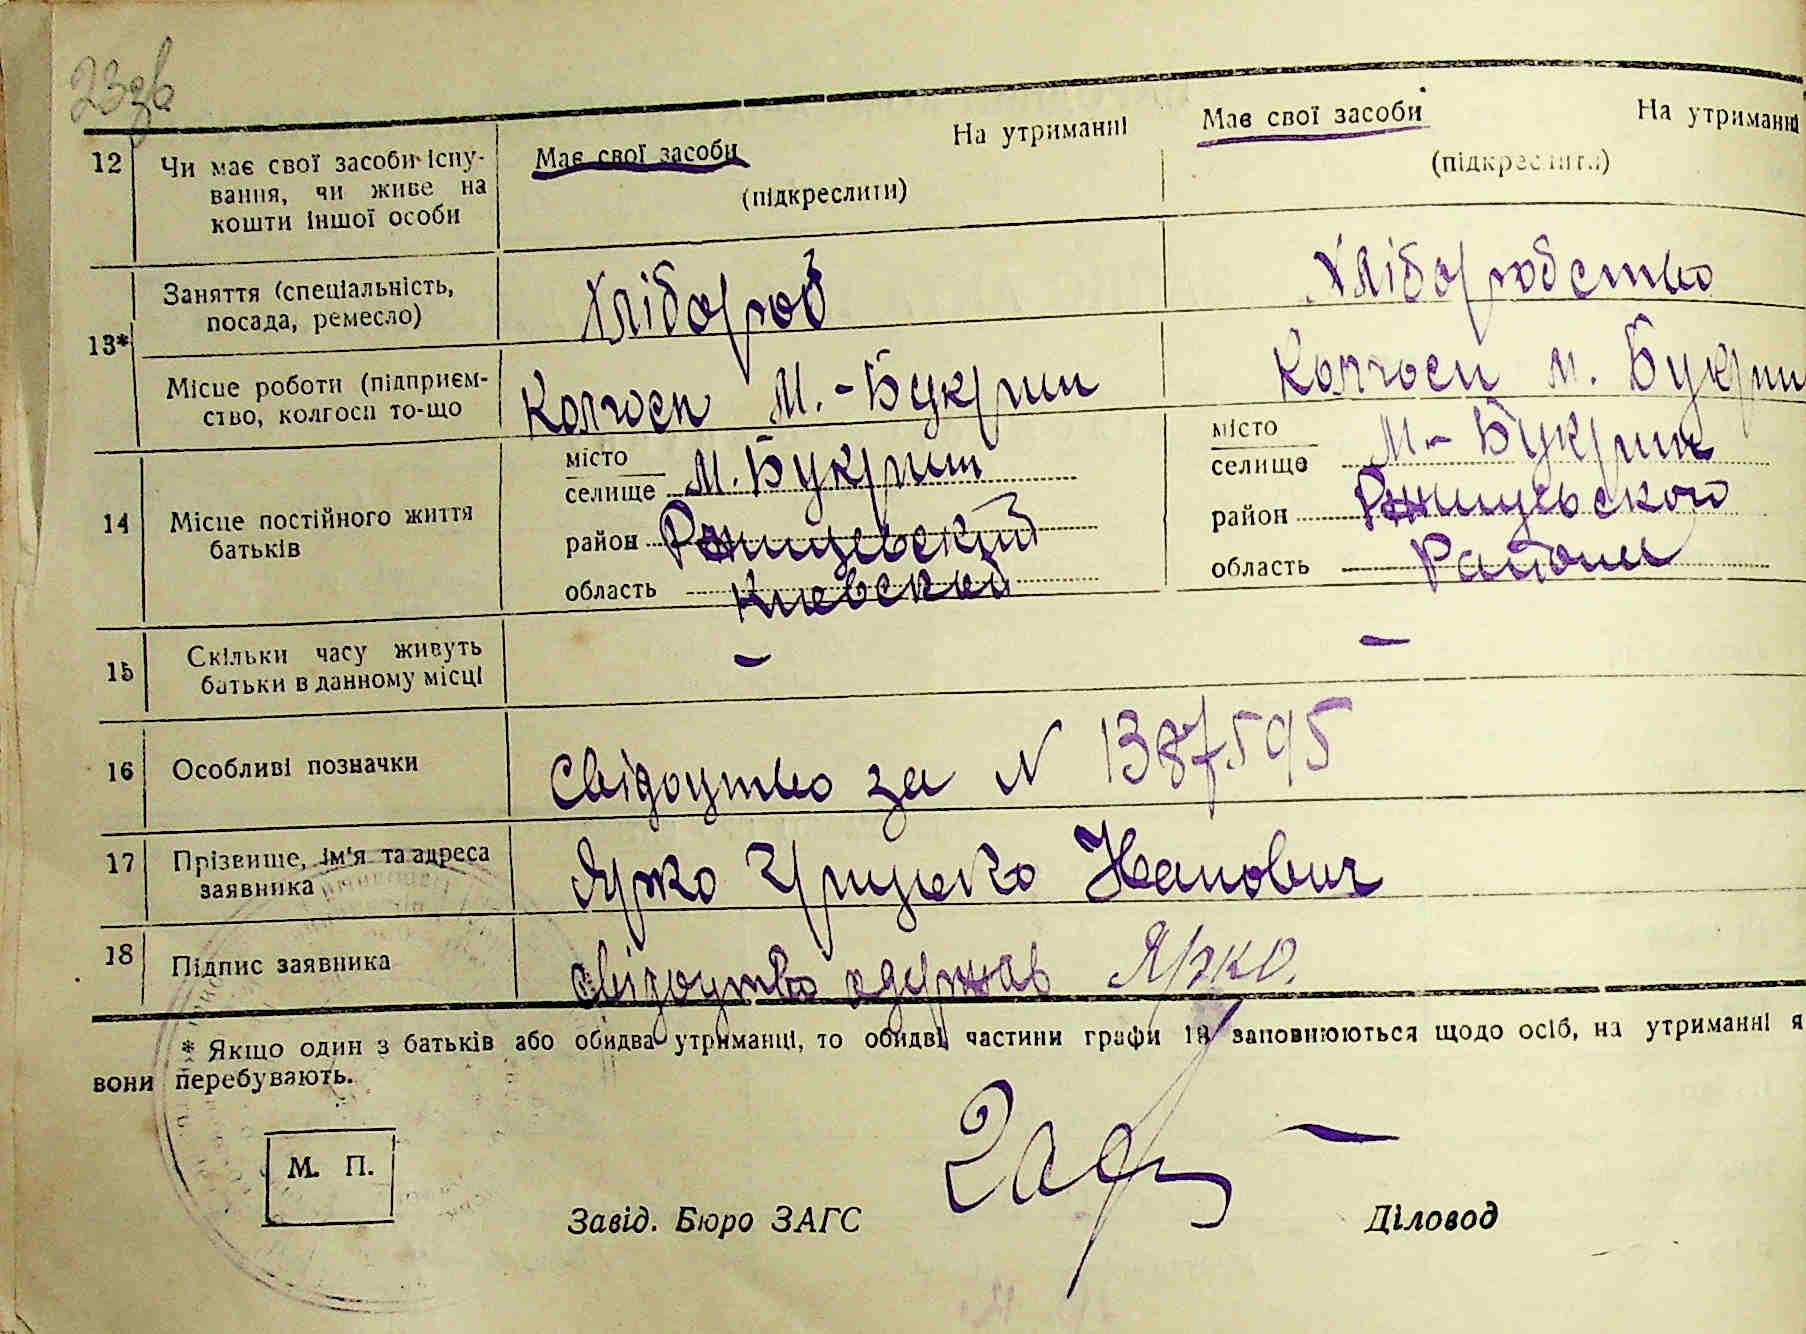 23зв
12 Чи має свої засоби існу-
вання, чи живе на
кошти іншої особи
Має свої засоби На утриманні
(підкреслити)
Має свої засоби На утриманні
(підкреслити)
13* Заняття (спеціальність,
посада, ремесло)
Хлібороб
Хліборобство
Місце роботи (підприєм-
ство, колгосп то-що
Колгосп М.-Букрин
Колгосп М. Букрин
14 Місце постійного життя
батьків
місто
селище М. Букрин
район Ржищевский
область Киевской
місто
селище М-Букрин
район Ржищевського
область Району
15 Скільки часу живуть
батьки в данному місці
–
–
16 Особливі позначки
Свідоцтво за N 1387595
17 Прізвище, ім'я та адреса
заявника
Ярко Грицько Иванович
18 Підпис заявника
свідоцтво одержав Ярко.
* Якщо один з батьків або обидва утриманці, то обидві частини графи 13 заповнюються щодо осіб, на утриманні я
вони перебувають.
М. П.
Завід. Бюро ЗАГС
–
Діловод